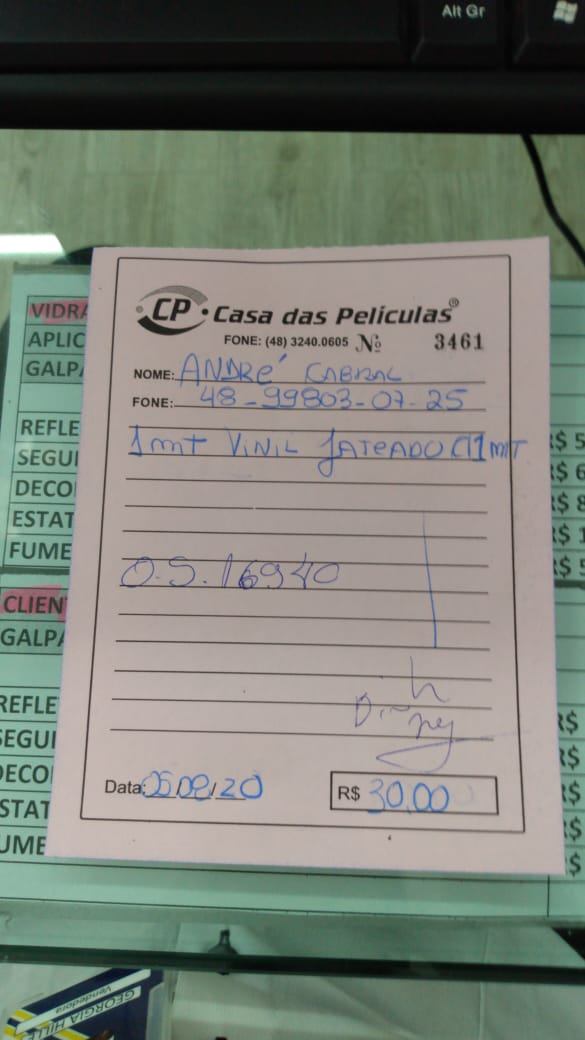 Alt Gr
CP Casa das Películas®
FONE: (48) 3240.0605 Nº 3461
NOME: ANDRÉ CABRAL
FONE: 48-99803-07-25
1mt VINIL JATEADO 1mt
O.S. 16940
Data: 05/08/20 R$ 30,00
VIDRA
APLIC
GALPA
REFLE
SEGUI
DECO
ESTAT
FUME
CLIENT
GALPA
REFLE
SEGUI
DECO
STAT
UME
R$ 5
R$ 6
R$ 8
R$ 1
R$ 5
R$
R$
R$
R$
$
GEORGIA HILLE
Vendedora